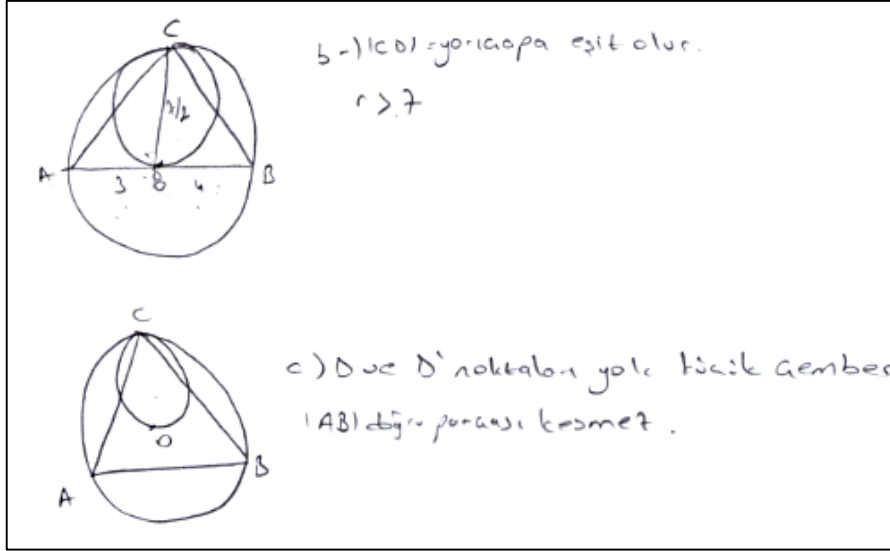 C
b-) |CO| = yarıçapa eşit olur.
r > 7
7/2
A
3
4
B
C
c) D ve D' noktaları yok küçük çember
|AB| doğru parçası kesmez.
O
B
A